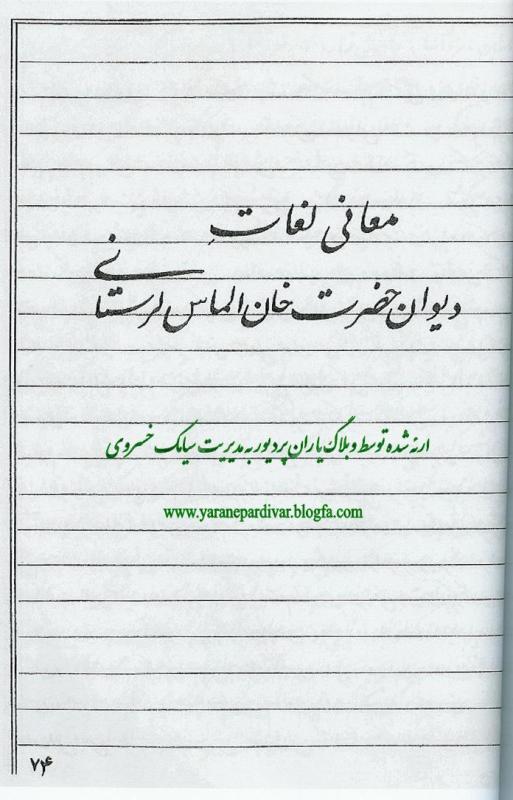 معانی لغاتِ
دیوان حضرت خان الماس لرستانی
ارئه شده توسط وبلاگ یاران پردیور به مدیریت سیامک خسروی
www.yaranepardivar.blogfa.com
۷۴